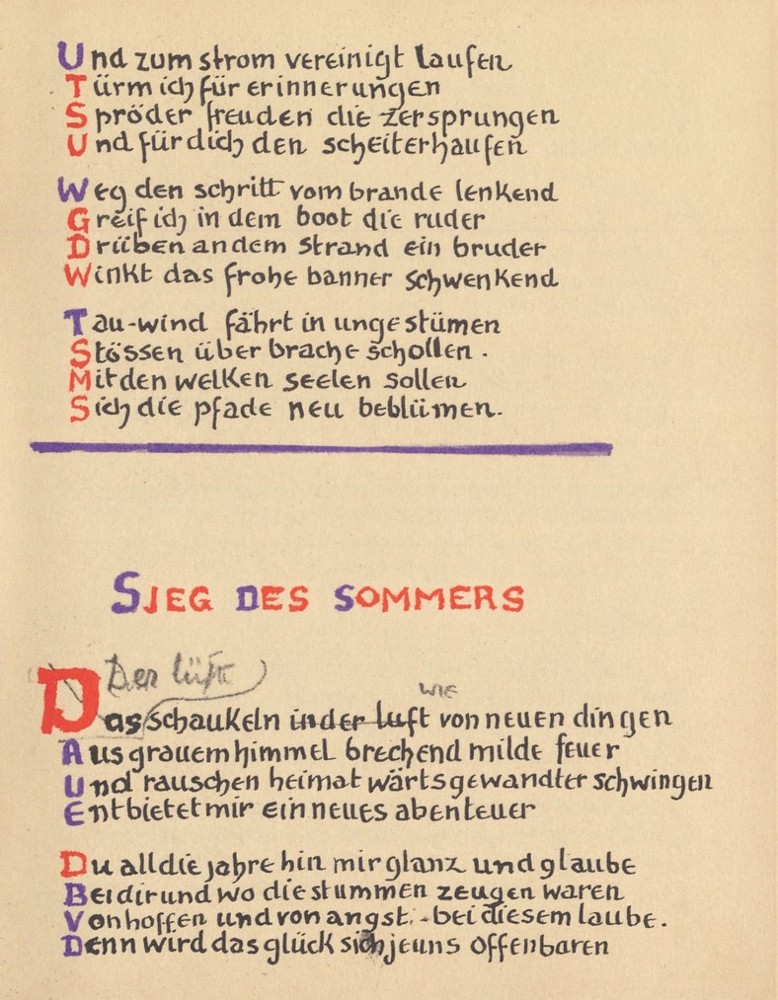 Und zum strom vereinigt laufen
Türm ich für erinnerungen
Spröder freuden die zersprungen
Und für dich den scheiterhaufen
Weg den schritt vom brande lenkend
Greif ich in dem boot die ruder
Drüben an dem strand ein bruder
Winkt das frohe banner schwenkend
Tau-wind fährt in ungestümen
Stössen über brache schollen.
Mit den welken seelen sollen
Sich die pfade neu beblümen.
SIEG DES SOMMERS
Der lüfte
wie
Das schaukeln in der luft von neuen dingen
Aus grauem himmel brechend milde feuer
Und rauschen heimatwärts gewandter schwingen
Entbietet mir ein neues abenteuer
Du all die jahre hin mir glanz und glaube
Bei dir und wo die stummen zeugen waren
Von hoffen und von angst. - bei diesem laube.
Denn wird das glück sich je uns offenbaren